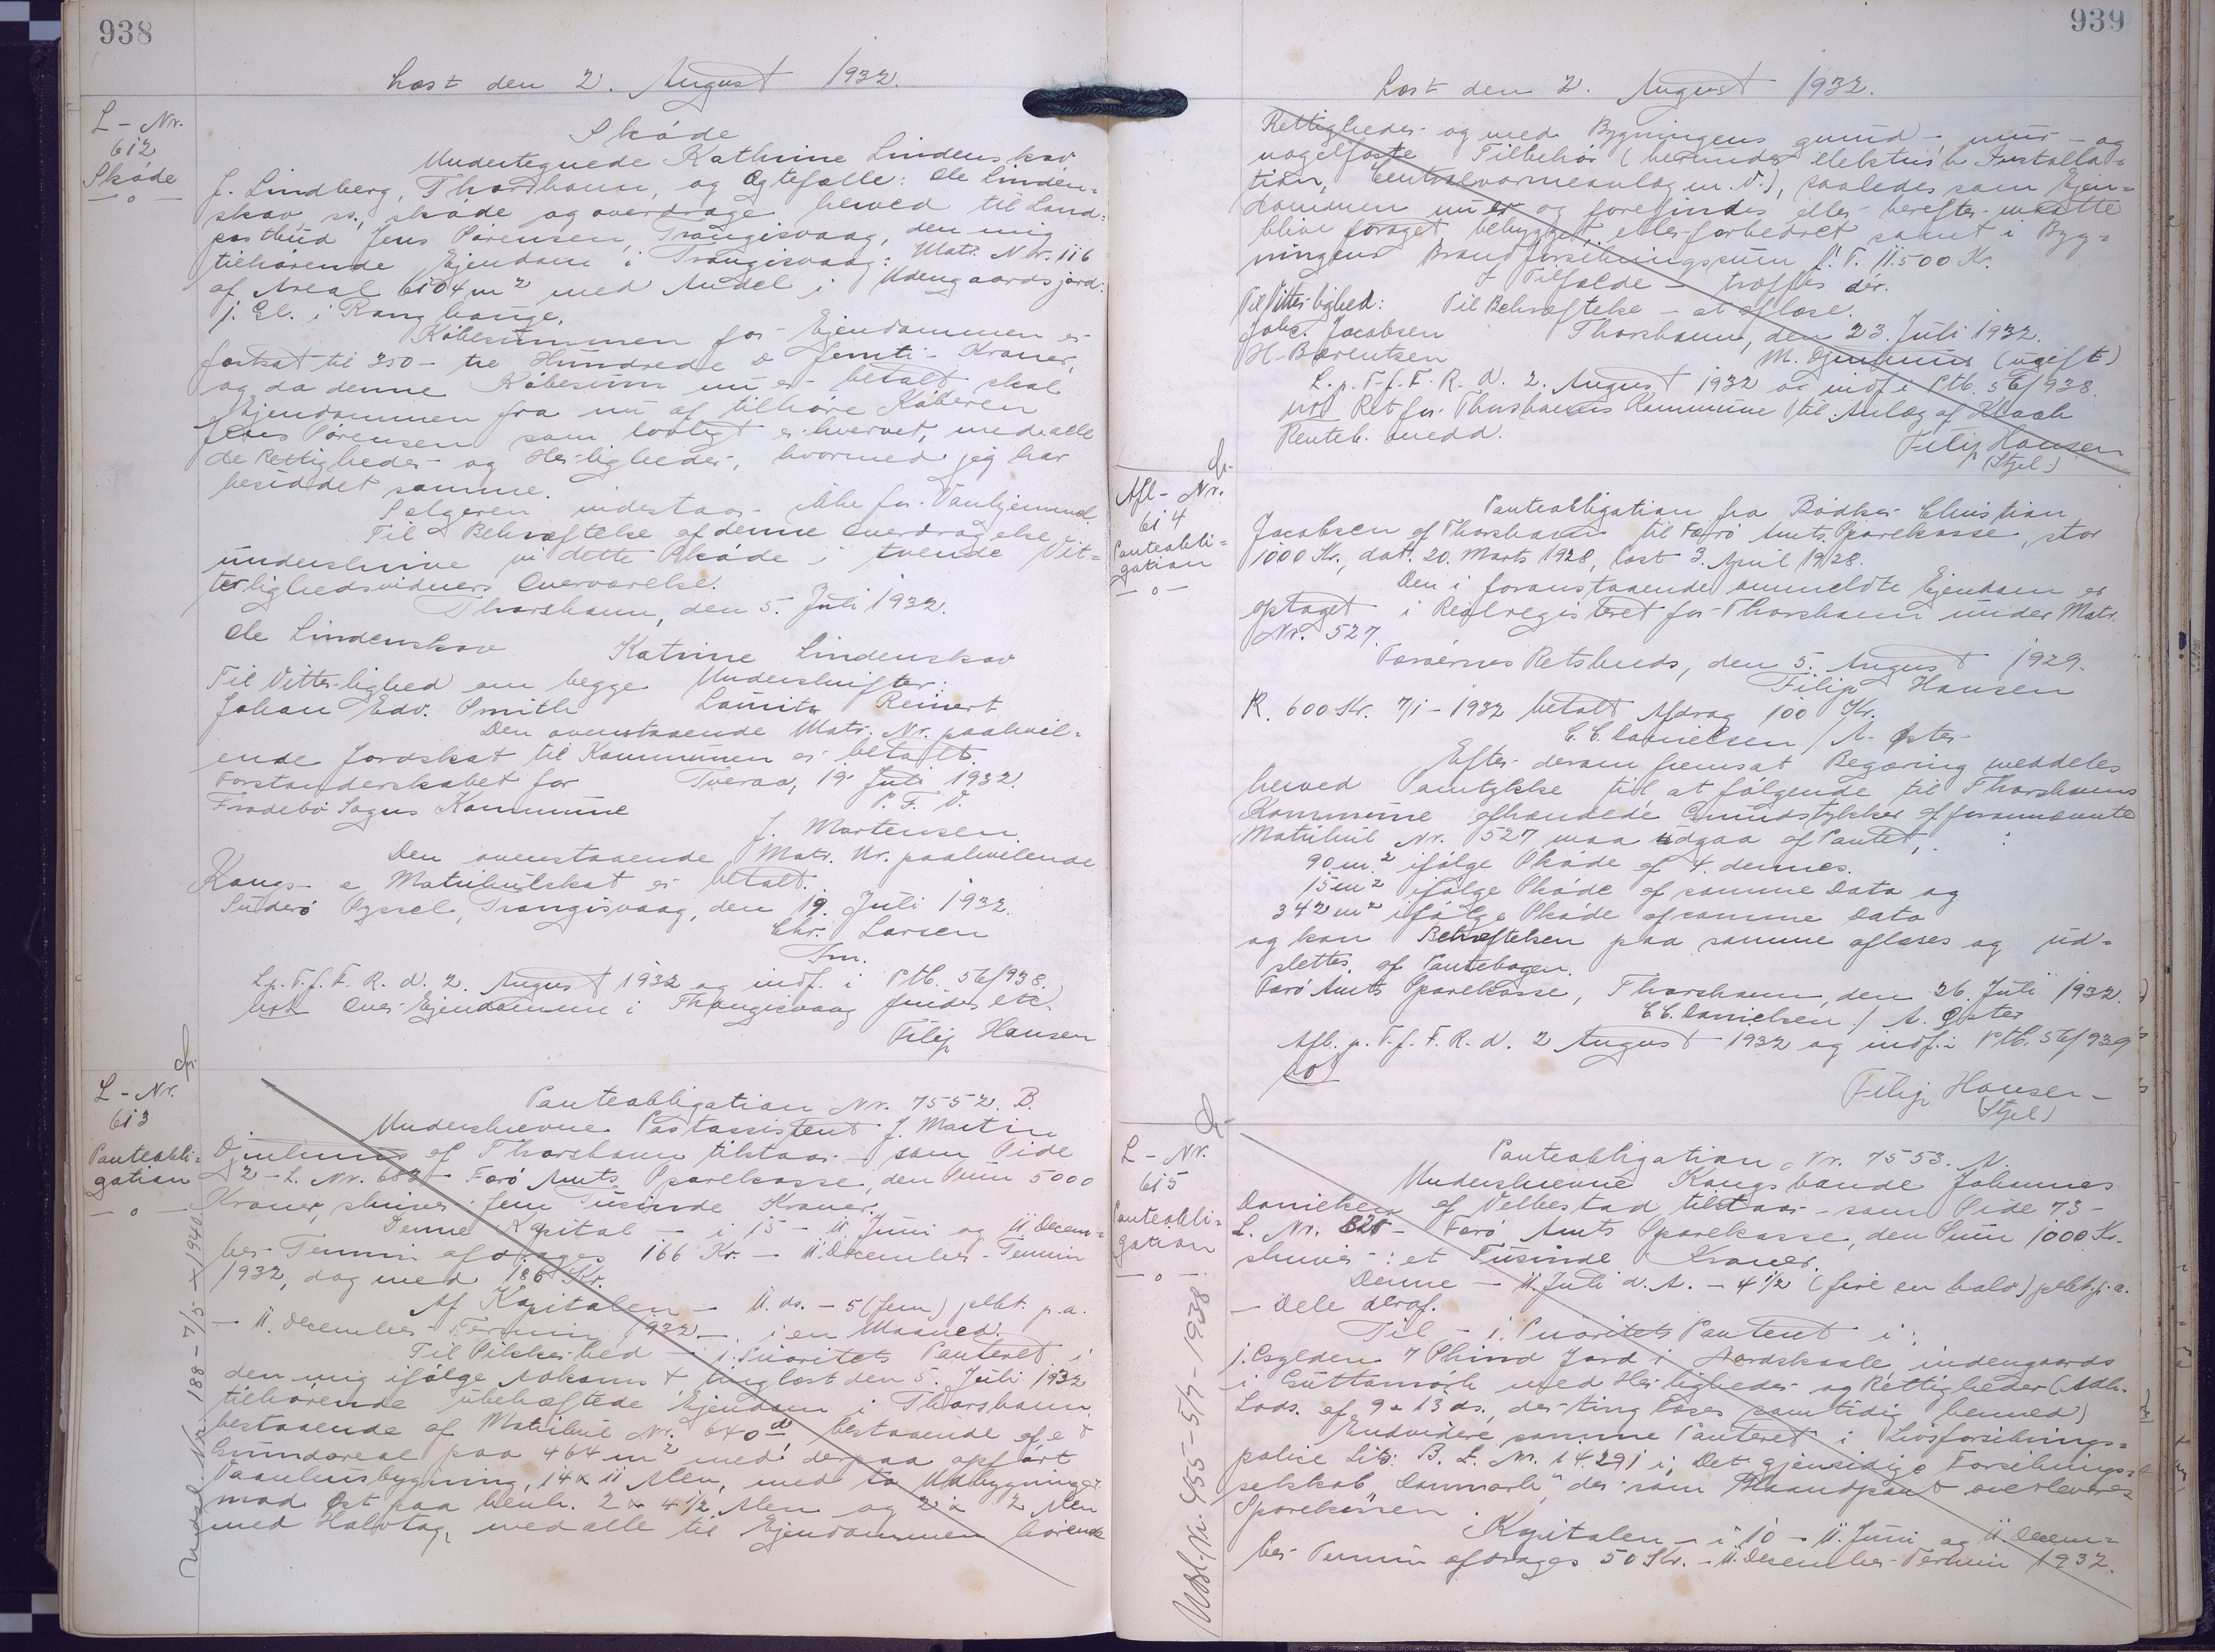 938
Læst den 2. August 1932.
L-Nr.
612
Skøde
-o-
Skøde
Undertegnede Kathrine Lindenskov
f. Lindberg, Thorshavn, og Ægtefælle: Ole Linden=
skov, ss., skøde og overdrage herved til Land=
postbud Jens Sørensen, Trangisvaag, den mig
tilhørende Ejendom i Trangisvaag: Matr. Nr. 116
af Areal 6104 m² med Andel i Udengaardsjord:
j. Gl. i Rang hauge.
Købesummen for Ejendommen er
fastsat til 350 - tre Hundrede & femti - Kroner,
og da denne Købesum nu er betalt skal
Ejendommen fra nu af tilhøre Køberen
Jens Sørensen som lovligt erhvervet, med alle
de Rettigheder og Herligheder, hvormed jeg har
besiddet samme.
Sælgeren indestaar ikke for Vanhjemmel.
Til Bekræftelse af denne Overdragelse
underskrive vi dette Skøde i tvende Vit=
terlighedsvidners Overværelse.
Thorshavn, den 5. Juli 1932.
Ole Lindenskov Katrine Lindenskov
Til Vitterlighed om begge Underskrifter:
Johan Edv. Smith Reinert
Den ovenstaaende Matr. Nr. paahvil=
ende Jordskat til Kommunen er betalt.
Forstanderskabet for Tveraa, 19 Juli 1932.
Frodebø Sogns Kommune P. F. V.
J. Mortensen
Den ovenstaaende Matr. Nr. paahvilende
Kongs- & Matrikulskat er betalt.
Suderø Syssel, Trangisvaag, den 19. Juli 1932.
Chr. Larsen
Fm.
L. p. T. f. F. R. d. 2. August 1932 og indf. i Ptb. 56/938.
not Over Ejendommen i Thrangisvaag findes etc.
Filip Hansen
L-Nr.
613
Panteobli=
gation
-o-
Udsl. Nr. 188 - 7/5 - 1940
Panteobligation Nr. 7552. B.
Underskrevne Postassistent J. Martin
Djurhuus af Thorshavn tilstaar - som Side
2 - L. Nr. 683 - Færø Amts Sparekasse, den Sum 5000
Kroner, skriver fem Tusinde Kroner.
Denne Kapital - i 15 - 11. Juni og 11 Decem=
ber Termin afdrages 166 Kr. - 11. December-Termin
1932, dog med 186 Kr.
Af Kapitalen - 11. ds. - 5 (fem) pCt. p.a.
- 11. December Termin 1932 - i en Maaned.
Til Sikkerhed - 1. Prioritets Panteret i
den mig ifølge Adkomst tinglæst den 5. Juli 1932
tilhørende ubehæftede Ejendom i Thorshavn,
bestaaende af Matrikul Nr. 640 d bestaaende af et
Grundareal paa 464 m² med derpaa opført
Vaanhusbygning, 14 x 11 Alen, med to Udbygninger
mod Øst paa henh. 2 x 4 1/2 Alen og 2 x 2 Alen
med Halvtag, med alle til Ejendommen hørende
939
Læst den 2. August 1932.
Rettigheder og med Bygningens grund- mur- og
nagelfaste Tilbehør (herunder elektrisk Installa=
tion, Centralvarmeanlæg m. v.), saaledes som Ejen=
dommen nu er og forefindes eller herefter maatte
blive forøget, bebygget, eller forbedret samt i Byg=
ningens Brandforsikringssum p. T. 11.500 Kr.
I Tilfælde - træffes der.
Til Vitterlighed: Til Bekræftelse - at aflæse.
Johs. Jacobsen Thorshavn, den 23. Juli 1932.
H. Bærentsen M. Djurhuus (ugift)
L. p. T. f. F. R. d. 2. August 1932 og indf. i Ptb. 56/938.
not Ret for Thorshavns Kommune til Anlæg af Kloak
Renteb. medd.
Filip Hansen
(Stpl.)
Afl-Nr.
614
Panteobli=
gation
-o-
Panteobligation fra Bødker Christian
Jacobsen af Thorshavn til Færø Amts Sparekasse, stor
1000 Kr., dat. 20. Marts 1928, læst 3. April 1928.
Den i foranstaaende ommeldte Ejendom er
optaget i Realregisteret for Thorshavn under Matr.
Nr. 527.
Færøernes Retskreds, den 5. August 1929.
Filip Hansen
R. 600 Kr. 7/1 - 1932 betalt Afdrag 100 Kr.
C. C. Danielsen / A. Øster
Efter derom fremsat Begæring meddeles
herved Samtykke til at følgende til Thorshavns
Kommune afhændede Grundstykker af forannævnte
Matrikul Nr. 527 maa udgaa af Pantet,:
90 m² ifølge Skøde af 4. dennes.
15 m² ifølge Skøde af samme Dato og
342 m² ifølge Skøde af samme Dato
og kan Behæftelsen paa samme aflæses og ud=
slettes af Pantebogen.
Færø Amts Sparekasse, Thorshavn, den 26. Juli 1932.
C. C. Danielsen / A. Øster
Afl. p. T. f. F. R. d. 2 August 1932 og indf. i Ptb. 56/939
Filip Hansen
(Stpl.)
L-Nr.
615
Panteobli=
gation
-o-
Udsl. Nr. 455 - 5/7 - 1938
Panteobligation Nr. 7553. A.
Underskrevne Kongsbonde Johannes
Danielsen af Velbestad tilstaar - som Side 73 -
L. Nr. 820 - Færø Amts Sparekasse, den Sum 1000 Kr.
skriver: et Tusinde Kroner.
Denne - 11. Juli d. A. - 4 1/2 (fire en halv) pCt. p. a.
- Dele deraf.
Til - 1. Prioritets Panteret i:
j. Gsylden 7 Skind Jord i Nordskaale indengaards
i Guttansøk med Herligheder og Rettigheder (Adk.
Lods. af 9 & 13 ds., der tinglæses samtidig hermed)
Endvidere samme Panteret i Livsforsikrings=
police Litr. B. L. Nr. 14291 i „Det gjensidige Forsikrings=
selskab „Danmark", der som Haandpant overleveres
Sparekassen.
Kapitalen - i 10 - 11. Juni og 11. Decem=
ber Termin afdrages 50 Kr. - 11. December-Termin 1932.